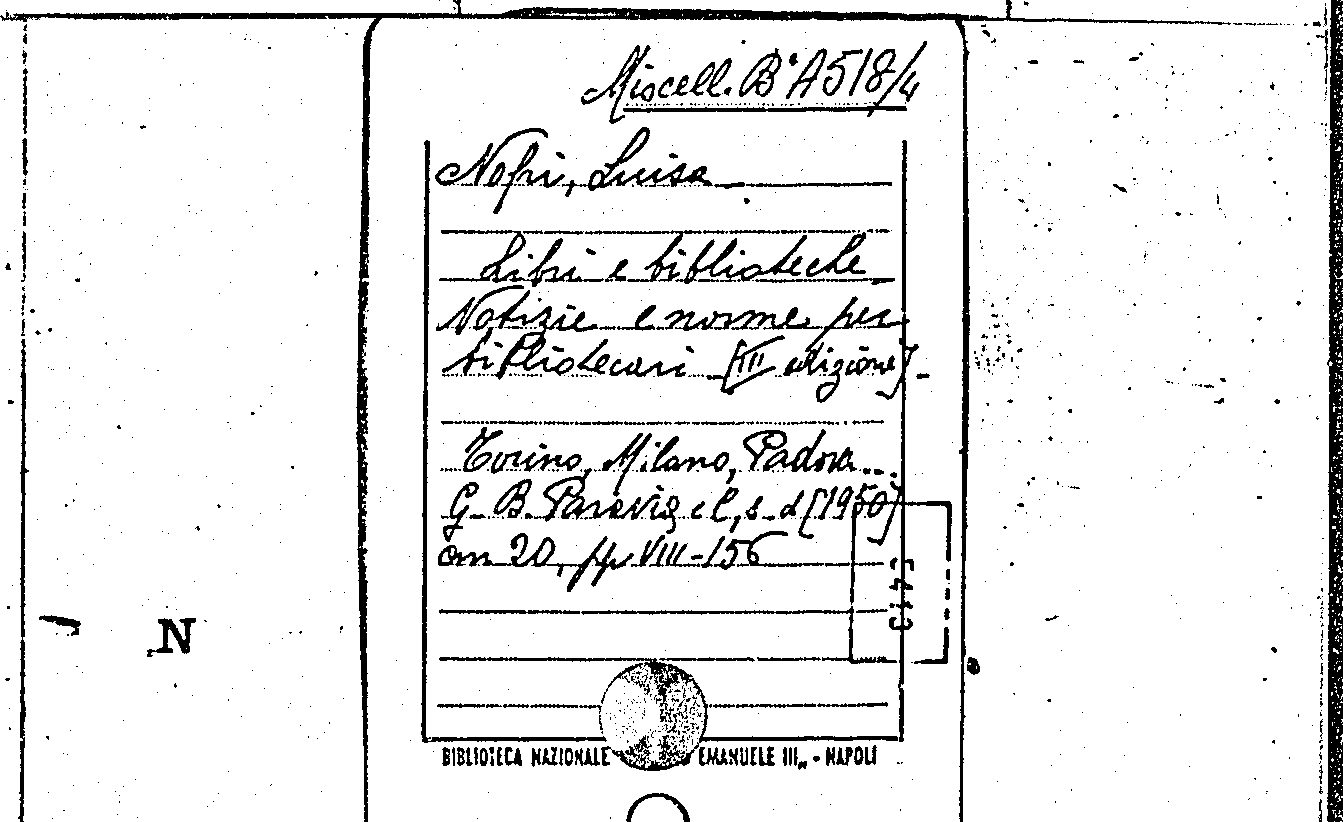 Miscell. B. A518/4
Nofri, Luisa
Libri e biblioteche
Notizie e norme per
bibliotecari [III edizione]-
Torino, Milano, Padova...
G. B. Paravia e C, s. d [1950]
cm 20, pp VIII-156
N
BIBLIOTECA NAZIONALE EMANUELE III„ - NAPOLI